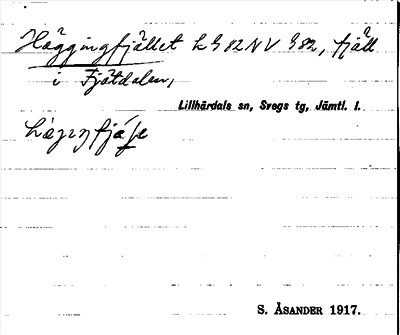 Häggingfjället h 982 NV 982, fjäll
i Fjätdalen,
Lillhärdals sn, Svegs tg, Jämtl. l.
S. ÅSANDER 1917.